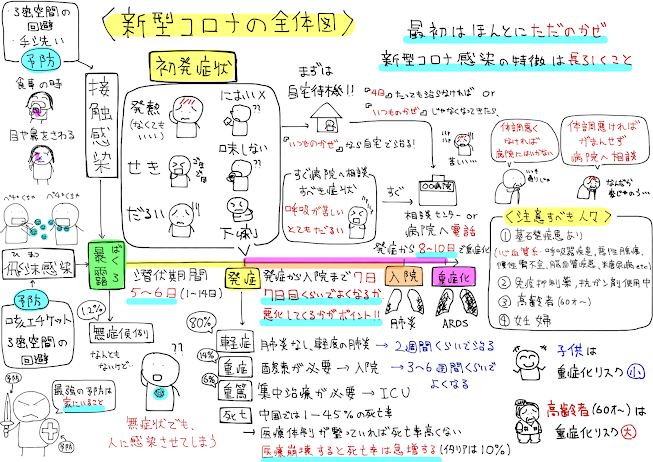 〈新型コロナの全体図〉
最初はほんとにただのかぜ
新型コロナ感染の特徴は長引くこと
・3密空間の
回避
・手洗い
予防
食事の時
目や鼻をさわる
接触感染
初発症状
発熱
(なくても
いい)
せき
だるい
におい×
味しない
下痢
まずは
自宅待機!!
『いつものかぜ』なら自宅で治る!
『4日』たっても治らなければ or
『いつものかぜ』じゃなくなってきたら、
すぐ病院へ相談
すべき症状
呼吸が苦しい
とてもだるい
すぐ
苦しい…
〇〇病院
相談センター or
病院へ電話
発症から8〜10日で重症化
体調悪く
なければ
病院にはいかない
体調悪ければ
がまんせず
病院へ相談
〈注意すべき人〉
① 基礎疾患あり
② 免疫抑制薬、抗がん剤使用中
③ 高齢者(60才〜)
④ 妊婦
ペチャクチャ
ペチャクチャ
ひまつ
飛沫感染
ばくろ
暴露
潜伏期間
5〜6日(1〜14日)
発症
発症から入院まで7日
7日目くらいでよくなるか
悪化してくるかがポイント!!
入院
重症化
肺炎
ARDS
予防
咳エチケット
3密空間の
回避
1.2%
無症候例
なんとも
ないけど…
無症状でも、
人に感染させてしまう
最強の予防は
家にいること
予防
予防
80%
軽症
肺炎なし、軽度の肺炎 → 2週間くらいで治る
14%
重症
酸素が必要 → 入院 → 3〜6週間くらいで
よくなる
6%
重篤
集中治療が必要 → ICU
死亡
中国では1〜4.5%の死亡率
医療体制が整っていれば死亡率高くない
医療崩壊すると死亡率は急増する(イタリアは10%)
子供は
重症化リスク 小
高齢者(60才〜)は
重症化リスク 大